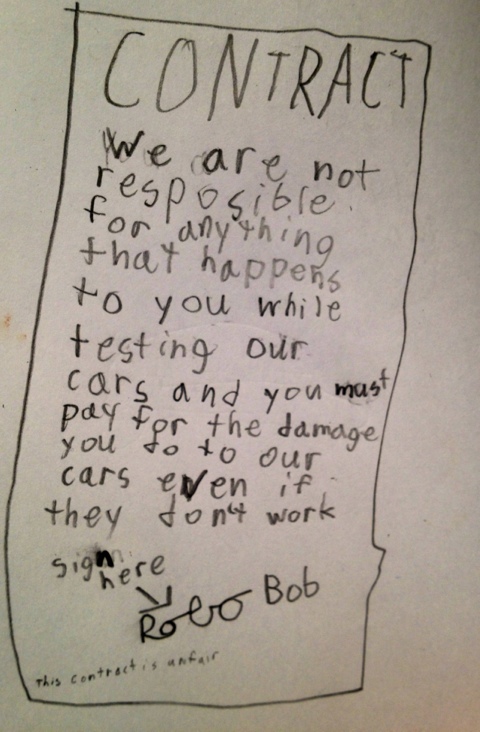 CONTRACT
We are not
resposible
for anything
that happens
to you while
testing our
cars and you must
pay for the damage
you do to our
cars even if
they don't work
sign
here
Robo Bob
This contract is unfair